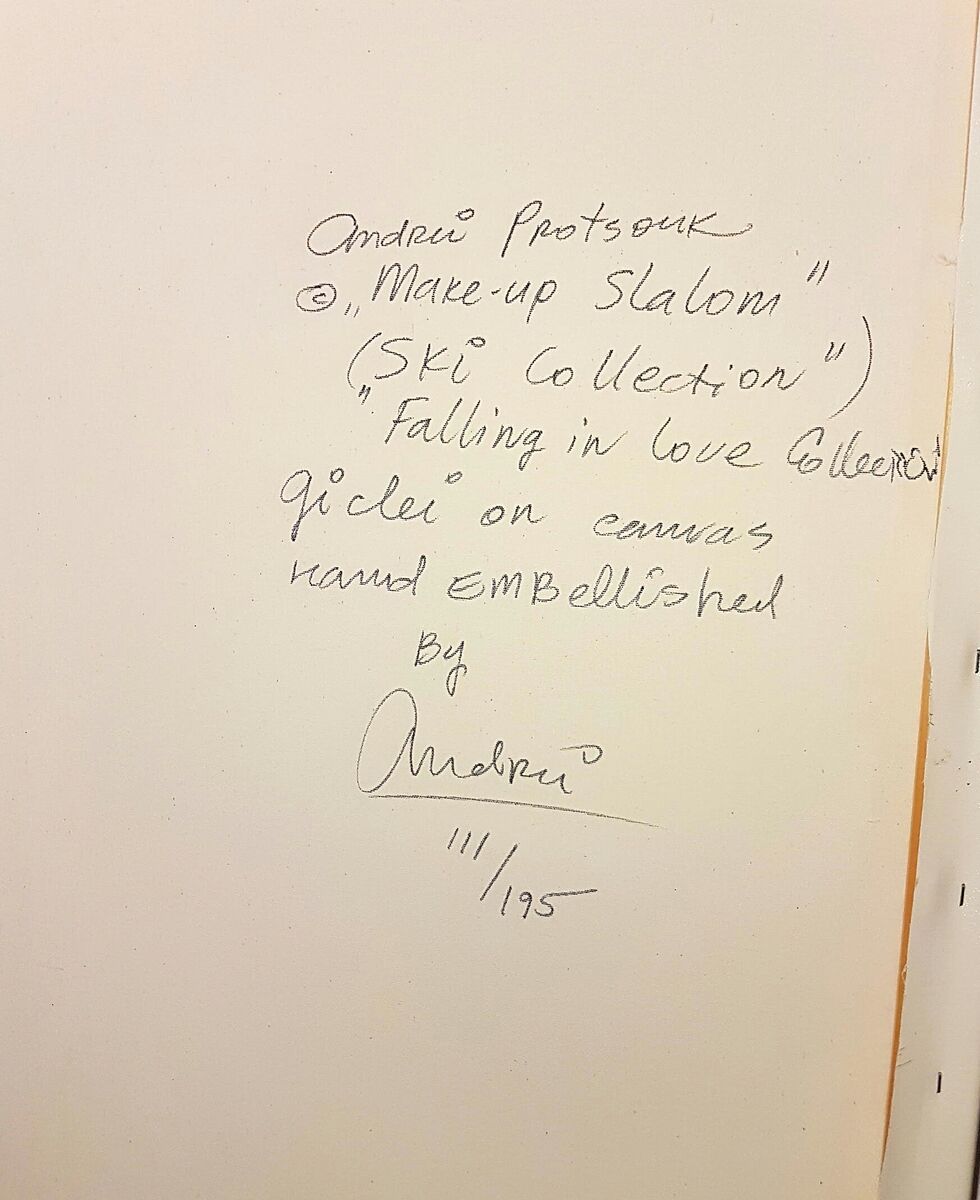 Andrii Protsouk
© „Make-up Slalom"
(Ski Collection")
"Falling in love Collection
giclei on canvas
Hand EMBellished
By
Andrii
111/195